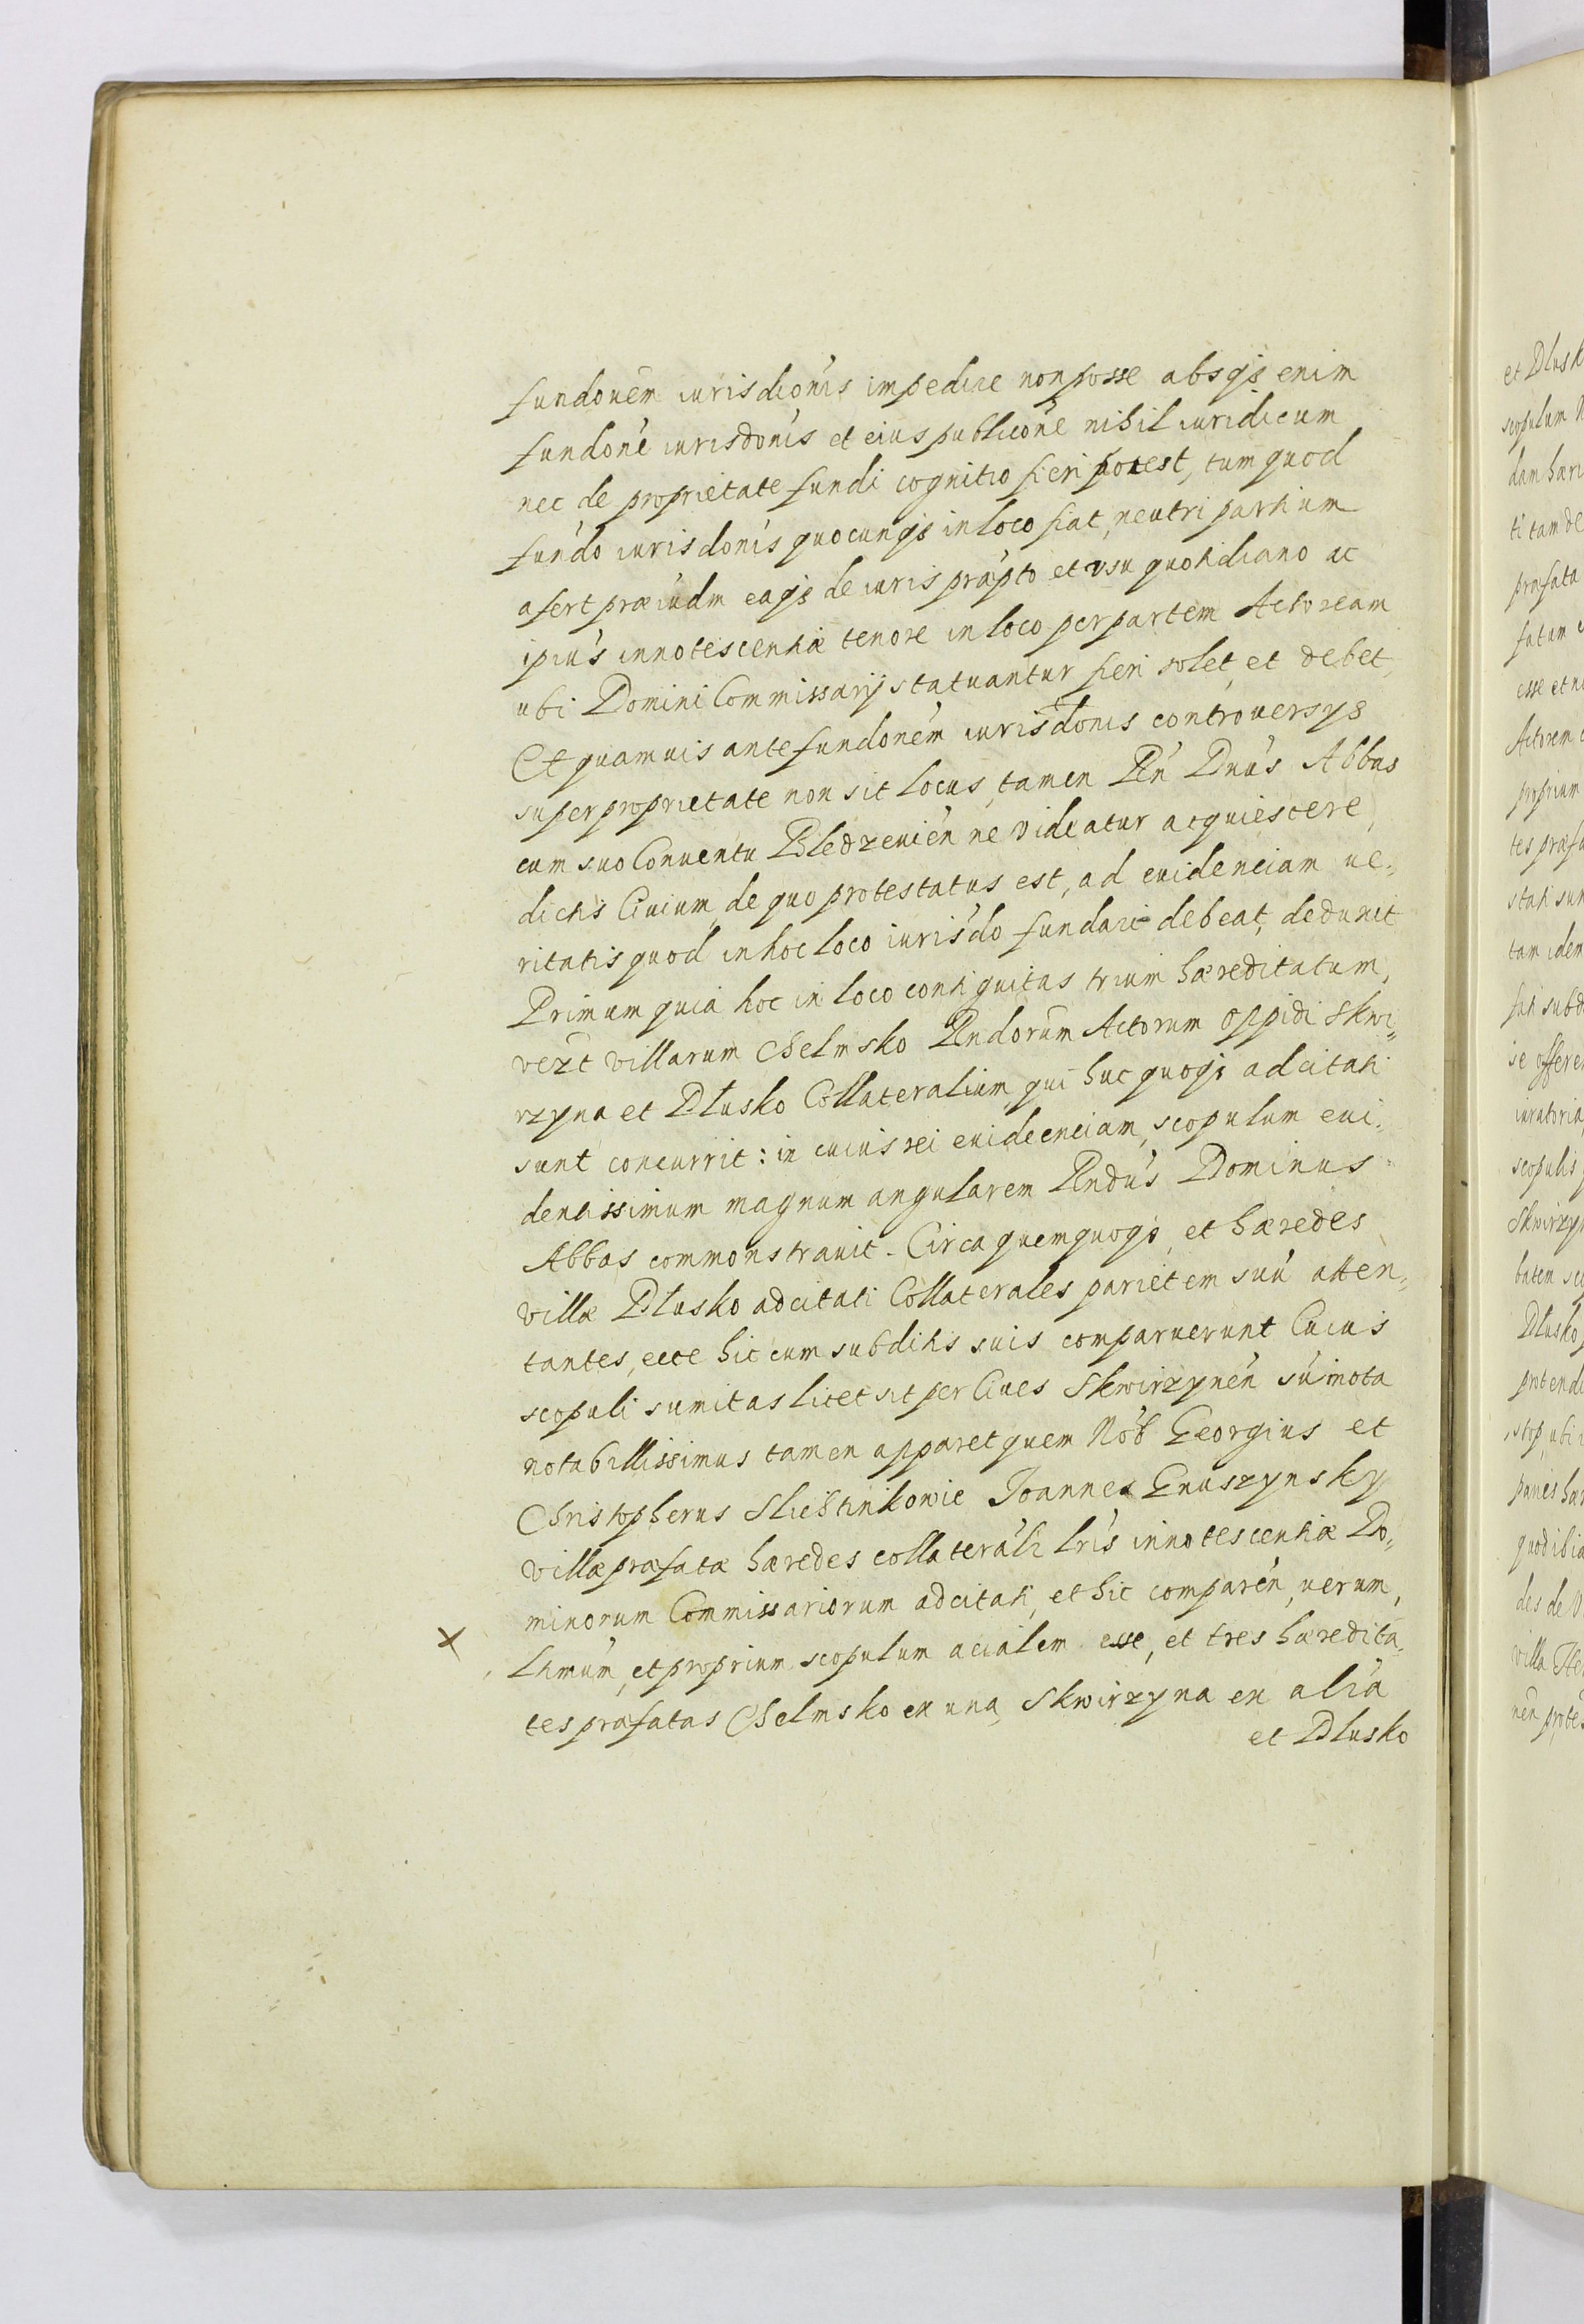 fundonem iurisdionis impedire non posse absq; enim
fundone iurisdonis et eius publicone nihil iuridicum
nec de proprietate fundi cognitio fieri potest, tum quod
fundo iurisdonis quocunq; in loco fiat, neutri partium
afert præiudm eaq; de iuris præpto et vsu quotidiano ac
ipius innotescentiæ tenore in loco per partem Actoream
ubi Domini Commissarij statuantur fieri solet, et debet,
Et quamuis ante fundonem iurisdonis controuersys
super proprietate non sit locus, tamen Rn Dnus Abbas
cum suo Conuentu Bledzeuien ne videatur acquiescere,
dictis Ciuium, de quo protestatus est, ad euidenciam ue-
ritatis quod in hoc loco iurisdo fundari debeat, deduxit
Primum quia hoc in loco contiguitas trium hæreditatum,
vezt villarum Chelmsko Rndorum Actorum oppidi Skwi-
rzyna et Dlusko Collateralium, qui huc quoq; adcitati
sunt concurrit: in cuius rei euideenciam, scopulum eui-
dentissimum magnum angularem Rndus Dominus
Abbas commonstrauit. Circa quem quoq; et hæredes
villæ Dlusko adcitati Collaterales parietem suu atten-
tantes, ecce hic cum subditis suis comparuerunt Cuius
scopuli sumitas licet sit per Ciues Skwirzynen sumota
notabillissimus tamen apparet quem Nob Georgius et
Christopherus Slichtinkowie Joannes Gnuszynsky
villæ præfatæ hæredes collaterali lris innotescentiæ Do-
minorum Commissariorum adcitati, et hic comparen, uerum,
ltmum, et proprium scopulum acialem esse, et tres hæredita-
tes præfatas Chelmsko ex una, Skwirzyna ex alia
et Dlusko
et Dlusk
scopulum
dam hæri
ti tam de
præfata
esse et
Actorem
proprium
tes præfa
stati sun
tam idem
se offere
iuratoria
scopulis
Skwirzyn
Dlusko
ptendi
quod ibi
des de
villa
nen protes